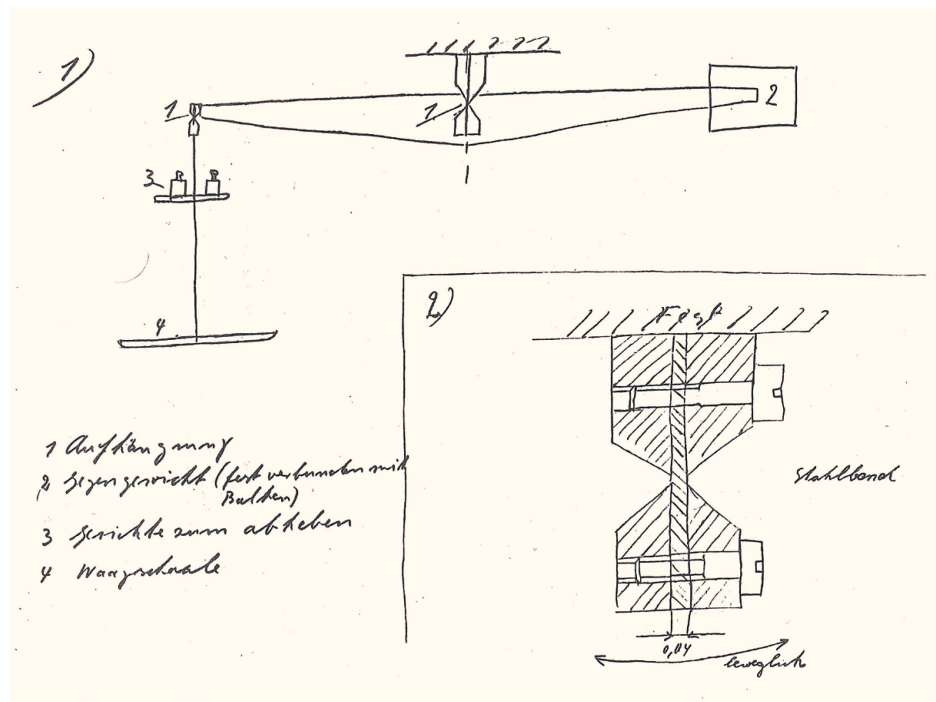 1)
1
1
2
3
4
1 Aufhängung
2 Gegengewicht (fest verbunden mit
Balken)
3 Gewichte zum abheben
4 Waagschale
2)
Fest
Stahlband
0,04
beweglich